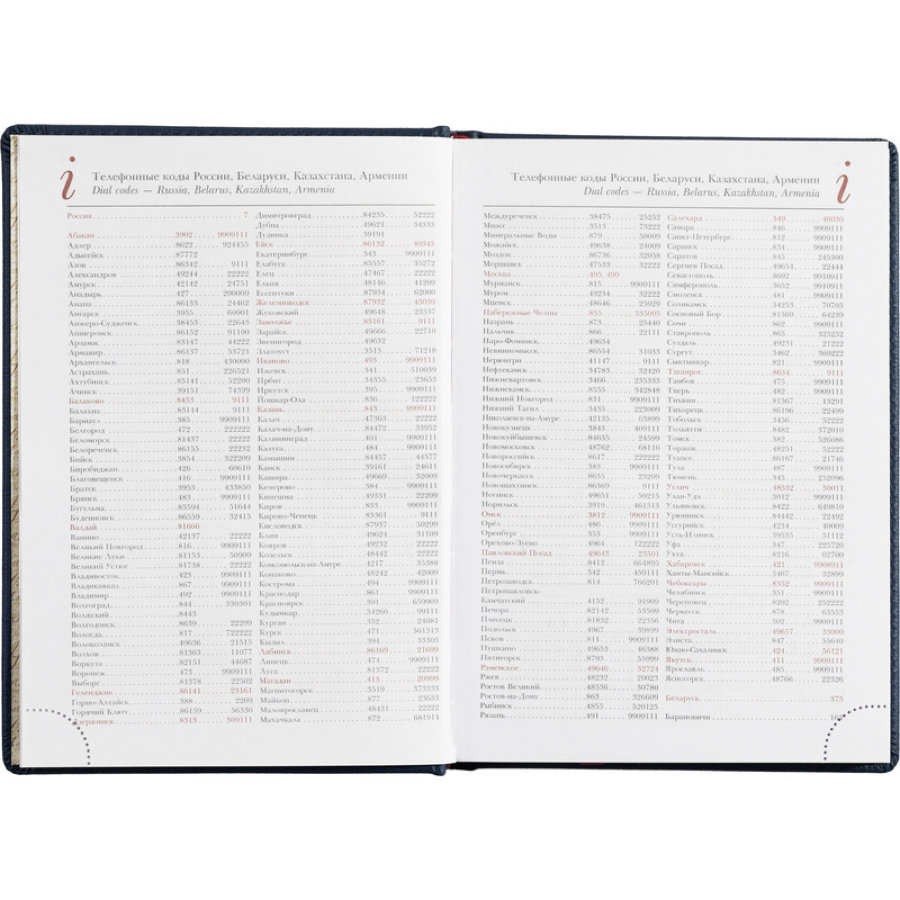 i
Телефонные коды России, Беларуси, Казахстана, Армении
Dial codes — Russia, Belarus, Kazakhstan, Armenia
Россия 7
Абакан 3902 9909111
Адлер 8622 924455
Адыгейск 87772
Азов 86342 9111
Александров 49244 22222
Амурск 42142 24751
Анадырь 427 200009
Анапа 86133 24462
Ангарск 3955 60901
Анжеро-Судженск 38453 22643
Апшеронск 86152 91100
Арзамас 83147 44222
Армавир 86137 53721
Архангельск 818 450000
Астрахань 851 226521
Ахтубинск 85141 52200
Ачинск 39151 74399
Балаково 8453 9111
Балахна 83144 9111
Барнаул 385 9909111
Белгород 472 222222
Беломорск 81437 22222
Белореченск 86155 22232
Бийск 3854 322209
Биробиджан 426 60610
Благовещенск 416 9909111
Братск 3953 433850
Брянск 483 9909111
Бугульма 85594 51644
Буденновск 86559 32415
Валдай 81666
Ванино 42137 22222
Великий Новгород 816 9909111
Великие Луки 81153 50909
Великий Устюг 81738 22222
Владивосток 423 9909111
Владикавказ 867 9909111
Владимир 492 9909111
Волгоград 844 330301
Волжский 8443
Волгодонск 8639 22209
Вологда 817 722222
Волоколамск 49636 21515
Волхов 81363 11077
Воркута 82151 44687
Воронеж 473 9909111
Выборг 81378 22502
Геленджик 86141 23161
Горно-Алтайск 388 2209
Горячий Ключ 86159 56330
Дзержинск 8313 309111
Димитровград 84235 52222
Дубна 49621 34333
Дудинка 39191
Ейск 86132 40345
Екатеринбург 343 9909111
Елабуга 85557 35272
Елец 47467 22222
Ельня 48146 41209
Ессентуки 87934 62000
Железноводск 87932 43030
Жуковский 49648 23337
Заволжье 83161 9111
Зарайск 49666 22710
Звенигород 49632
Златоуст 3513 71218
Иваново 493 9909111
Ижевск 341 510039
Ирбит 34355 23653
Иркутск 395 9909111
Йошкар-Ола 836 122222
Казань 843 9909111
Калач 47363 22222
Калач-на-Дону 84472 33952
Калининград 401 9909111
Калуга 484 9909111
Камышин 84457 44577
Канск 39161 24611
Кашира 49669 32009
Кемерово 384 9909111
Кинешма 49331 22209
Киров 833 9909111
Кирово-Чепецк 83361 9111
Кисловодск 87937 50299
Клин 49624 31109
Ковров 49232 22222
Козельск 48442 22222
Комсомольск-на-Амуре 4217 35388
Конаково 48242 42009
Кострома 494 9909111
Краснодар 861 9909111
Красноярск 391 659909
Кудымкар 34260 99111
Курган 352 24081
Курск 471 561313
Кызыл 394 33305
Лабинск 86169 21699
Липецк 474 9909111
Луга 81372 22222
Магадан 413 20999
Магнитогорск 3519 373333
Майкоп 877 23633
Малоярославец 48431 22222
Махачкала 872 681914
Телефонные коды России, Беларуси, Казахстана, Армении
Dial codes — Russia, Belarus, Kazakhstan, Armenia
i
Междуреченск 38475 25252
Миасс 3513 73222
Минеральные Воды 879 50009
Можайск 49638 24009
Моздок 86736 32058
Моршанск 47533 32222
Москва 495, 499
Мурманск 815 9909111
Муром 49234 32222
Мценск 48646 25929
Набережные Челны 855 535095
Назрань 873 25440
Нальчик 866 22111
Наро-Фоминск 49634
Невинномысск 86554 31033
Нерюнгри 41147 9111
Нефтекамск 34783 32420
Нижневартовск 3466 235333
Нижнекамск 8555 342848
Нижний Новгород 831 9909111
Нижний Тагил 3435 223009
Николаевск-на-Амуре 42135 63899
Новокузнецк 3843 409111
Новокуйбышевск 84635 24599
Новомосковск 48762 68110
Новороссийск 8617 222222
Новосибирск 383 9909111
Новочеркасск 8635 23209
Новошахтинск 86369 9111
Ногинск 49651 50215
Норильск 3919 464313
Омск 3812 9909111
Орёл 486 9909111
Оренбург 353 9909111
Орехово-Зуево 4964 122222
Павловский Посад 49643 23501
Пенза 8412 664895
Пермь 342 459111
Петрозаводск 814 766201
Петропавловск-
Камчатский 4152 91909
Печора 82142 33509
Плесецк 81832 22356
Подольск 4967 39899
Псков 811 9909111
Пушкино 49653 46388
Пятигорск 8793 55999
Раменское 49646 32724
Ржев 48232 20023
Ростов Великий 48536 30780
Ростов-на-Дону 863 326609
Рыбинск 4855 520125
Рязань 491 9909111
Салехард 349 46030
Самара 846 9909111
Санкт-Петербург 812 9909111
Саранск 834 9909111
Саратов 845 245300
Сергиев Посад 49654 22444
Севастополь 8692 9910911
Симферополь 3652 9910911
Смоленск 481 9909111
Соликамск 34253 70705
Сосновый Бор 81369 64239
Сочи 862 9909111
Ставрополь 865 325252
Суздаль 49231 21222
Сургут 3462 369222
Сыктывкар 821 9909111
Таганрог 8634 9111
Тамбов 475 9909111
Тверь 482 9909111
Тихвин 81367 13291
Тихорецк 86196 22499
Тобольск 3456 52222
Тольятти 8482 372010
Томск 382 526086
Торжок 48251 52222
Туапсе 86167 21746
Тула 487 9909111
Тюмень 345 252096
Углич 48532 50011
Улан-Удэ 3012 9909111
Ульяновск 8422 649810
Урюпинск 84442 22492
Уссурийск 4234 40009
Усть-Илимск 39535 51112
Уфа 347 225720
Ухта 8216 62700
Хабаровск 421 9909911
Ханты-Мансийск 3467 32899
Чебоксары 8352 9909111
Челябинск 351 9909111
Череповец 8202 252222
Черкесск 878 63553
Чита 302 9909111
Электросталь 49657 33000
Элиста 847 55640
Южно-Сахалинск 424 56121
Якутск 411 9909111
Ярославль 485 9909111
Ясногорск 48766 22326
Беларусь 375
Барановичи